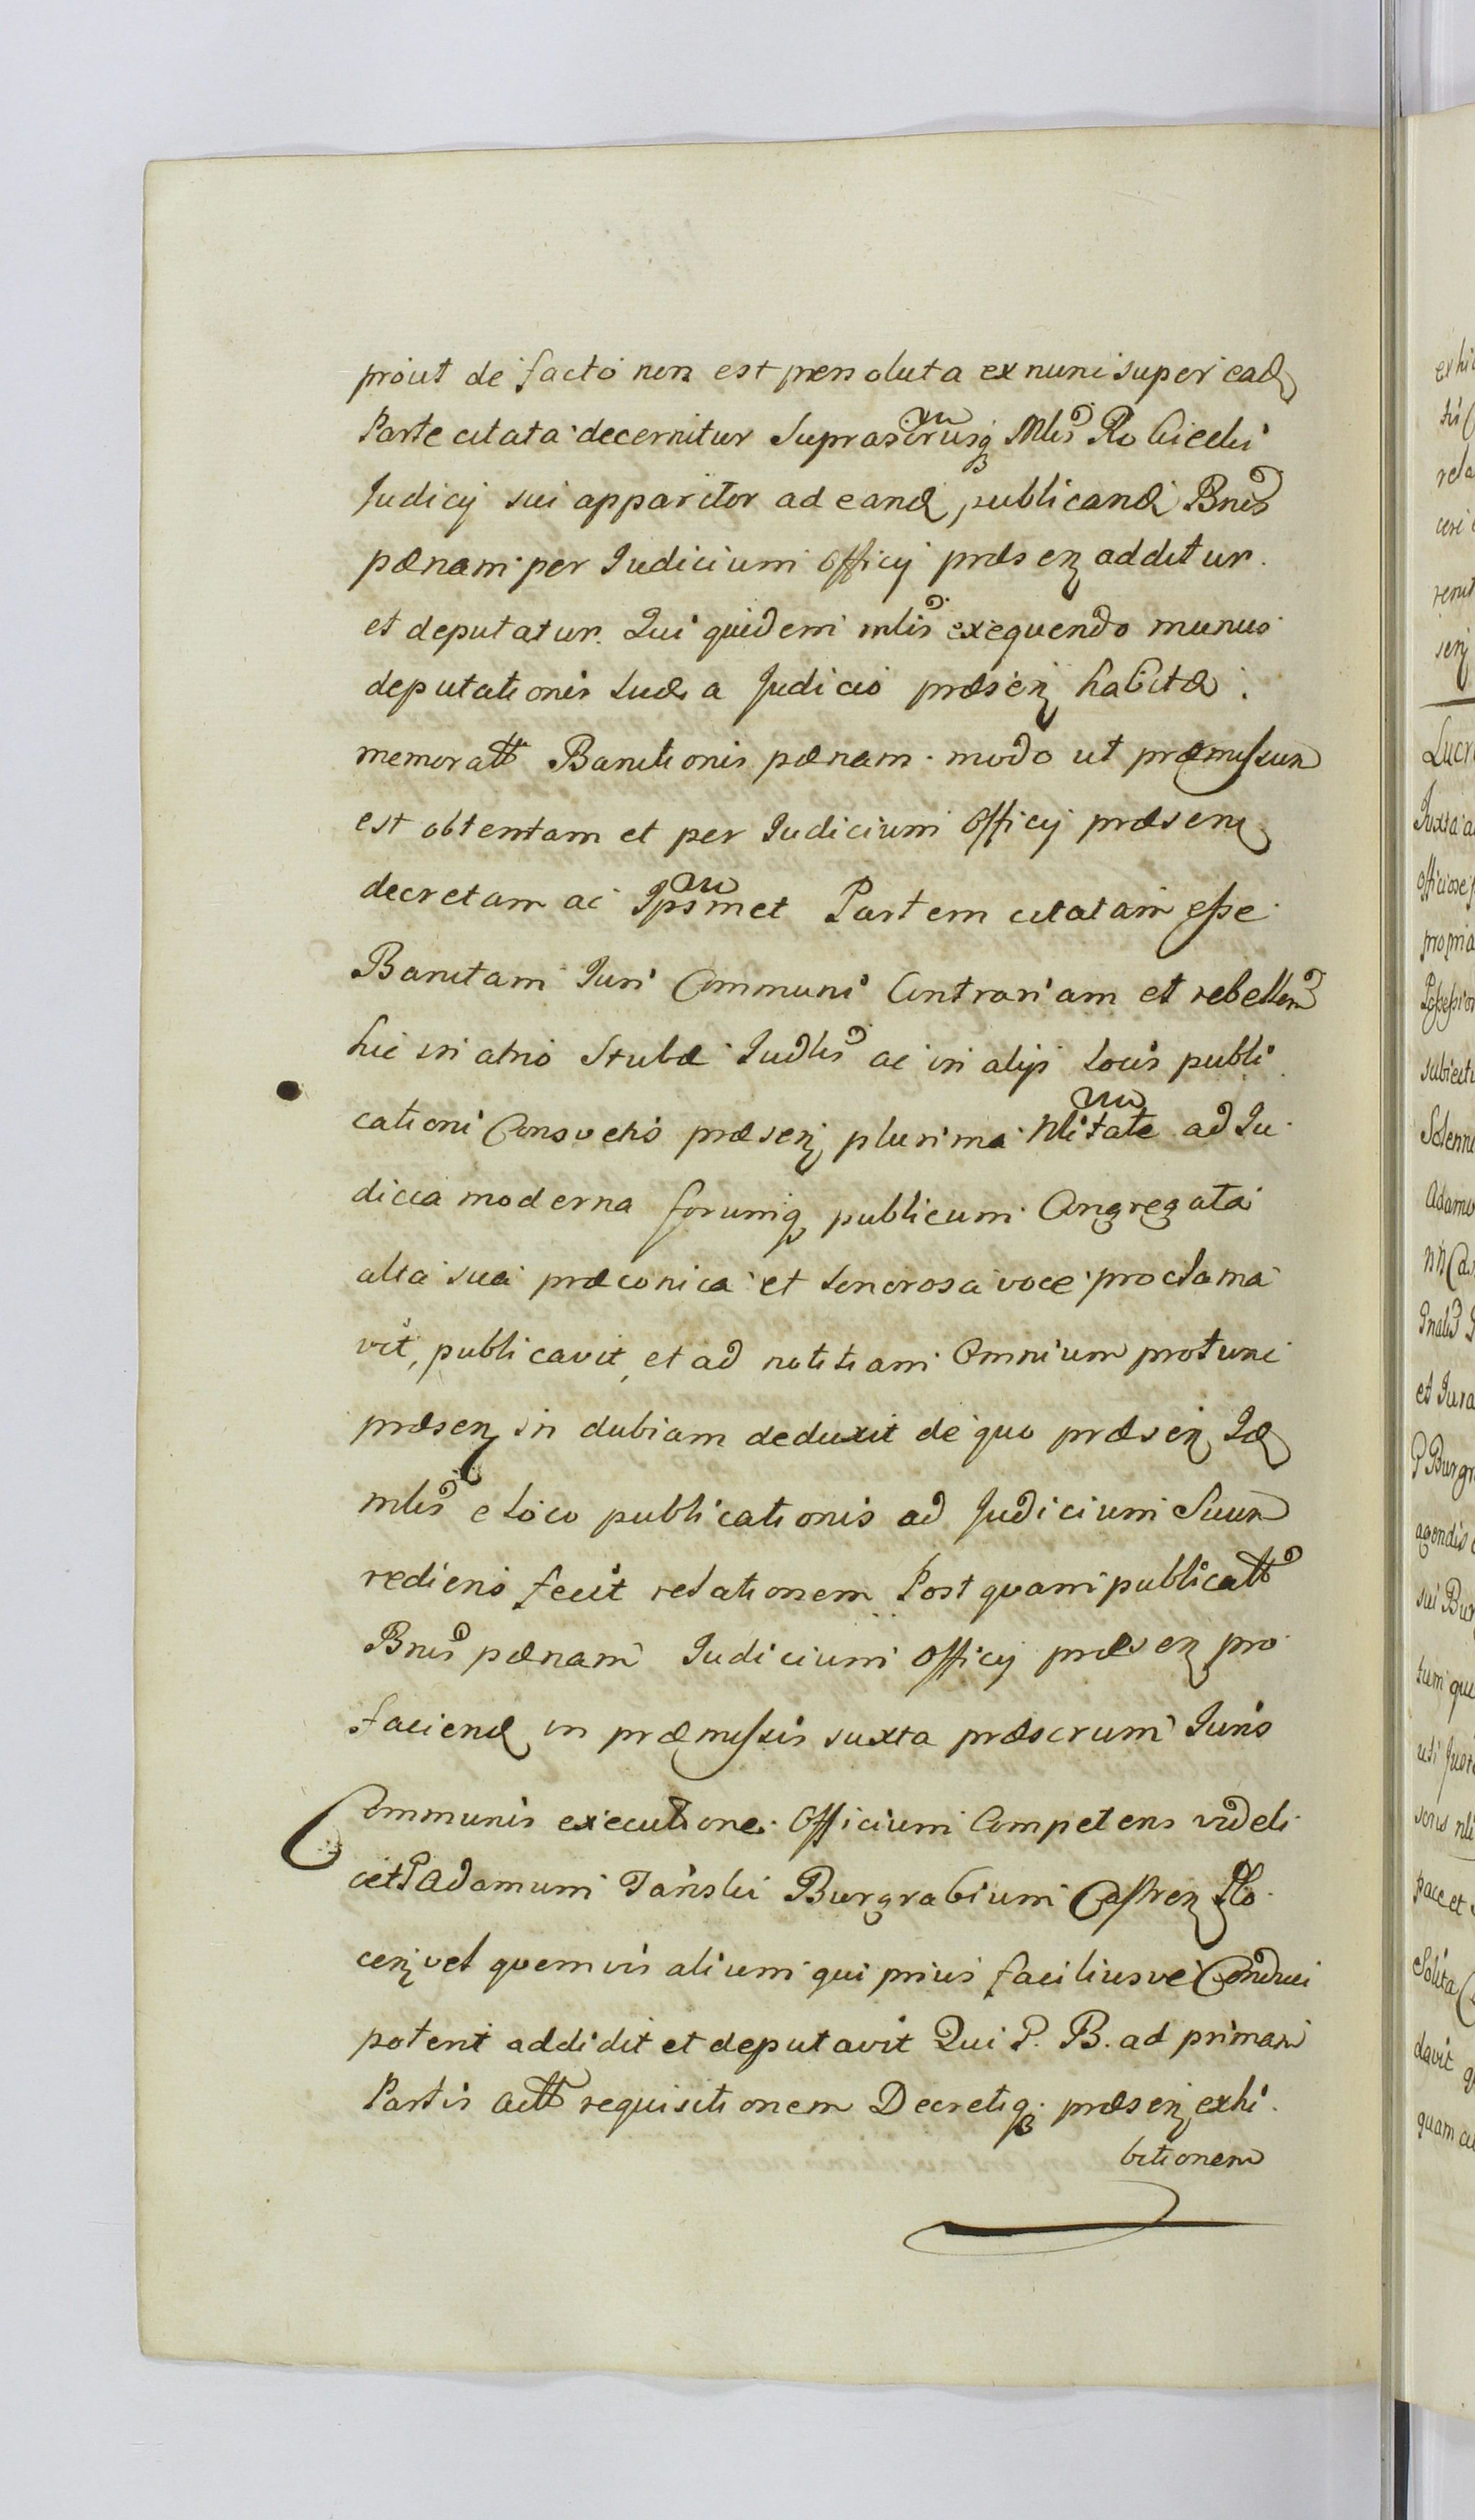 prout de facto non est persoluta ex nunc super ead
Parte citata decernitur Suprascrusq Mlis Ro Ciecki
Judicij sui apparitor ad eand publicand Bnis
pænam per Iudicium Officij præsen additur.
et deputatur. Qui quidem mlis exequendo munus
deputationis suæ a Judicio præsen habitæ.
memoratt Banitionis pænam modo ut præmissum
est obtentam et per Iudicium Officij præsens
decretam ac Ipsmet Partem citatam esse
Banitam Iuri Communi Contrariam et rebellem
hic in atrio Stubæ Iudlis ac in alijs Locis publi
cationi Consvetis præsen plurima Nlitate ad Iu
dicia moderna forumq publicum Congregata
alta sua præconica et sonorosa voce proclama
vit, publicavit, et ad notitiam Omnium protunc
præsen in dubiam deduxit de quo præsen Id
mlis e Loco publicationis ad Judicium Suum
rediens fecit relationem Post quam publicatt
Bnis pænam Iudicium Officij præsen pro
faciend in præmissis juxta præscrum Iuris
Communis executione Officium Competens videli
cet P Adamum Tański Burgrabium Castren Plo
cen vel quemvis alium qui prius faciliusve Conduci
poterit addidit et deputavit Qui P. B. ad primam
Partis Actt requisitionem Decretiq præsen exhi
bitionem